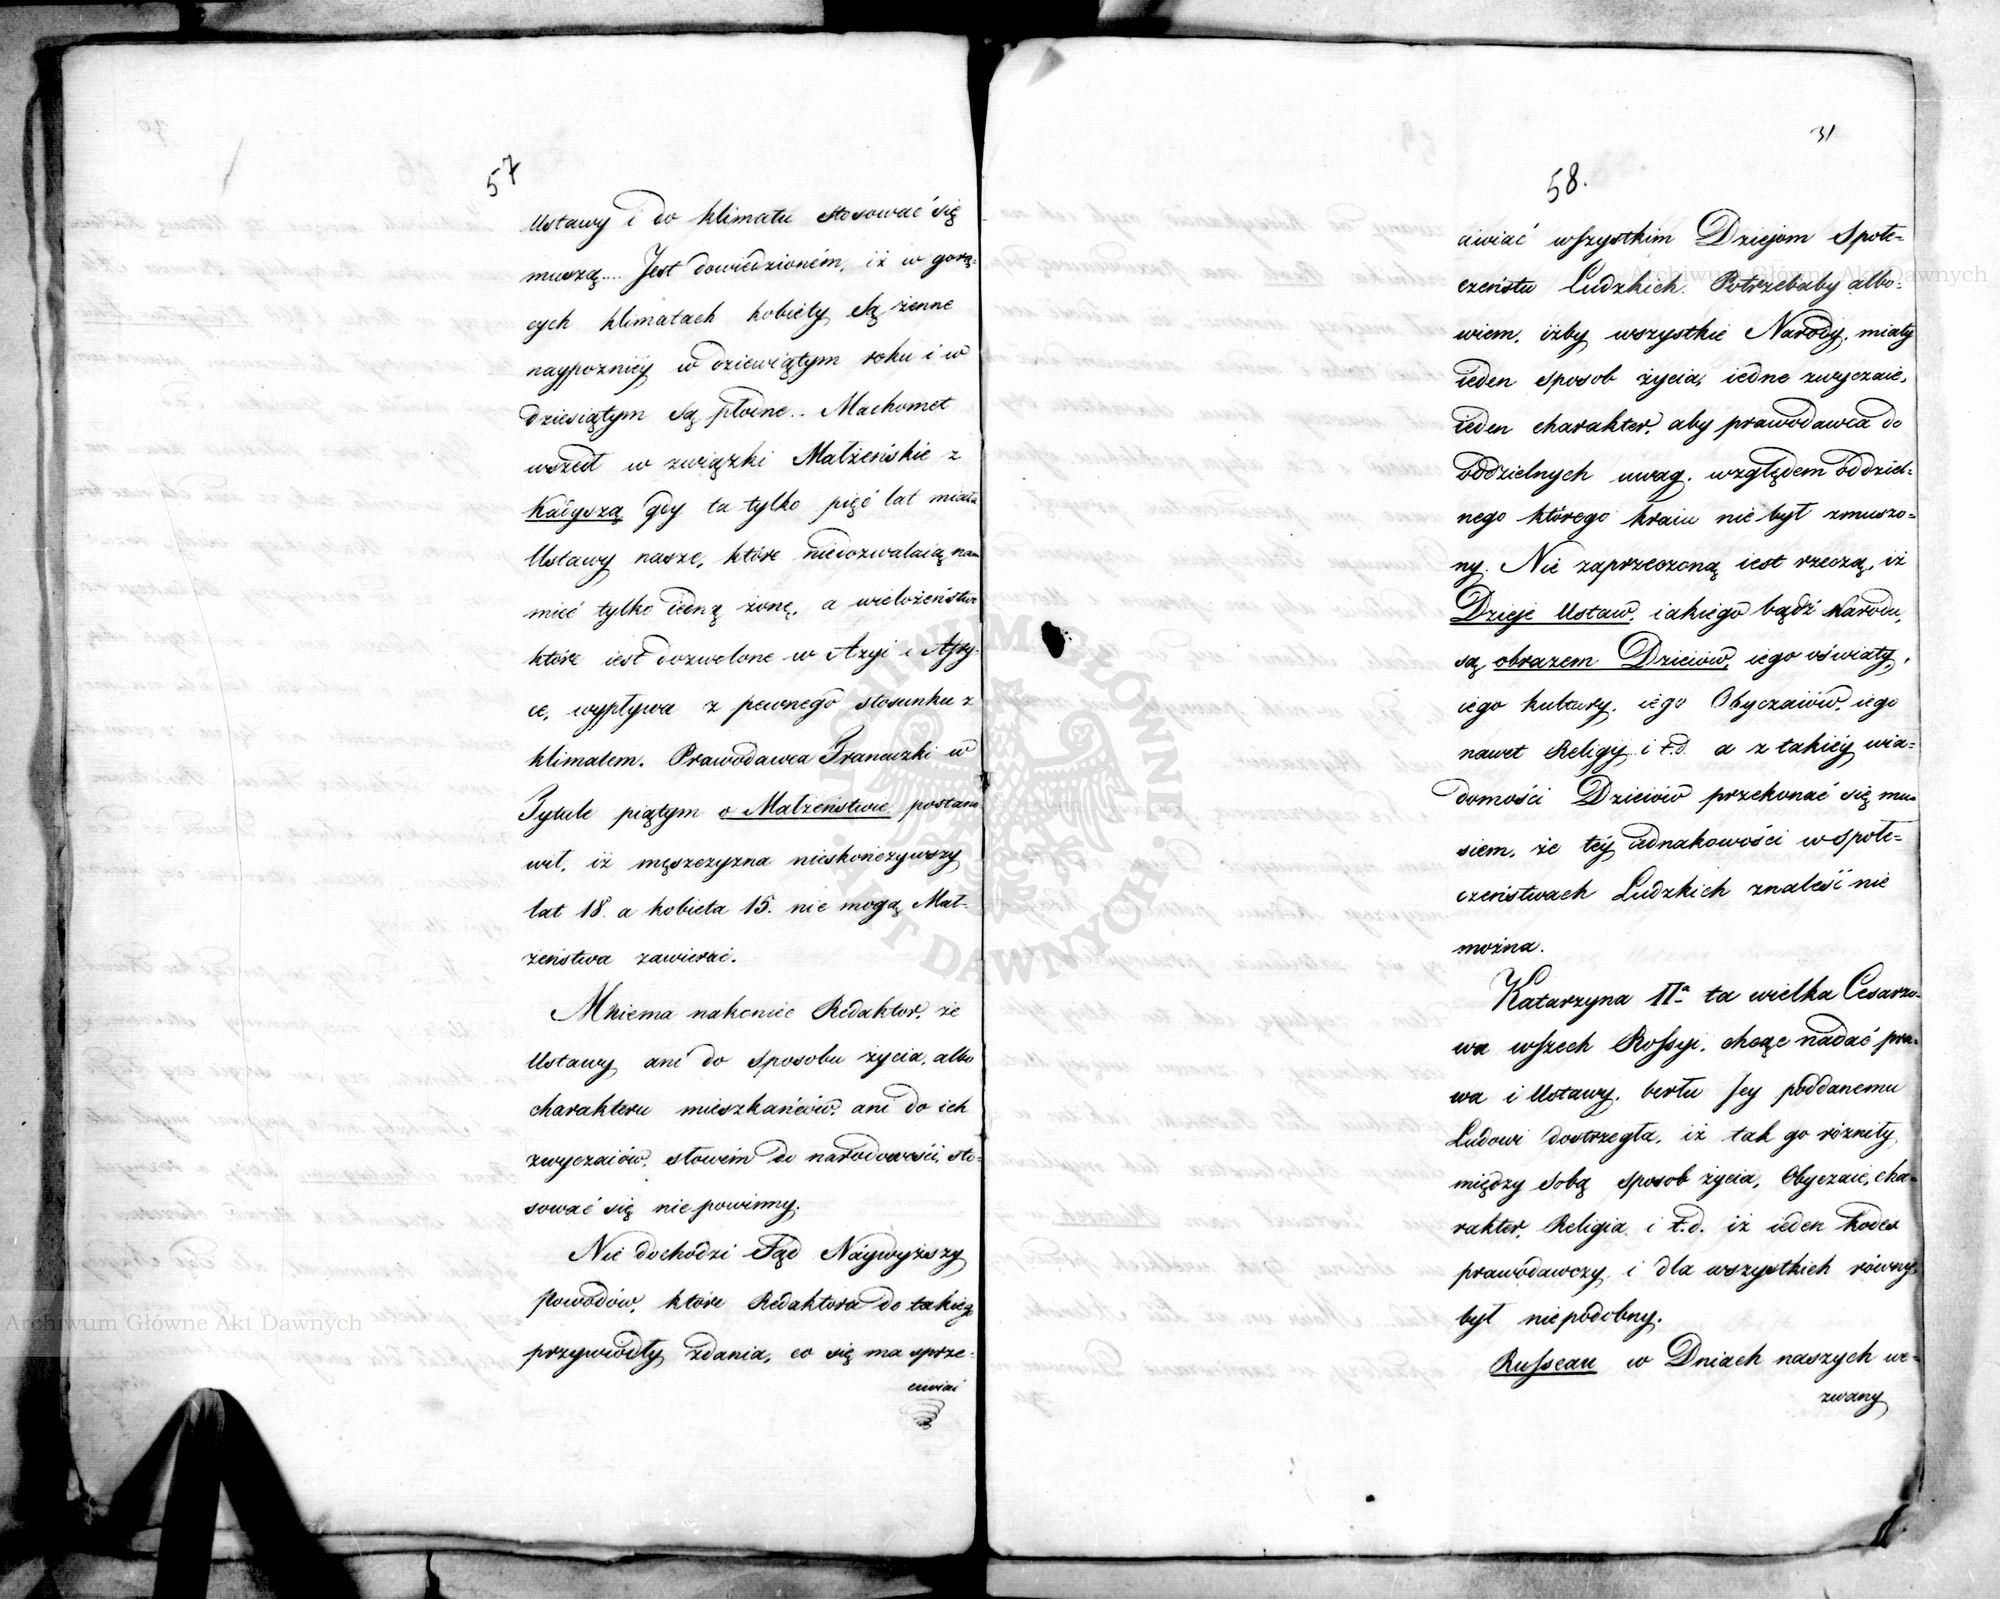 57
Ustawy i do klimatu stosować się
muszą.... Jest dowiedzioném, iż w gorą-
cych klimatach kobiéty są żenne
naypoźniéy w dziewiątym roku i w
dziesiątym są płodne.. Machomet
wszedł w związki Małżeńskie z
Kadyszą gdy ta tylko pięć lat miała
Ustawy nasze, które niedozwalaią nam
mieć tylko iedną żonę, a wielożeństwo
które iest dozwolone w Azyi i Afry-
ce, wypływa z pewnego stosunku z
klimatem. Prawodawca Francuzki w
Tytule piątym o Małżeństwie postano
wił, iż męszczyzna nieskończywszy
lat 18. a kobieta 15. nie mogą Mał-
żeństwa zawierać.
Mniema nakoniec Redaktor, że
Ustawy ani do sposobu życia, albo
charakteru mieszkańców, ani do ich
zwyczaiów, słowem do narodowości, sto-
sować się nie powinny.
Nie dochodzi Sąd Naywyższy
powodów, które Redaktora do takiego
przywiodły zdania, co się ma sprze-
ciwiać
31
58.
ciwiać wszystkim Dziejom Społe-
czeństw Ludzkich. Potrzebaby albo-
wiem, iżby wszystkie Narody, miały
ieden sposob życia, iedne zwyczaie,
ieden charakter, aby prawodawca do
oddzielnych uwag, względem oddziel-
nego którego kraiu nie był zmuszo-
ny. Nie zaprzeczoną iest rzeczą, iż
Dzieje Ustaw, iakiego bądź Narodu,
są obrazem Dzieiów, iego oświaty,
iego kultury, iego Obyczaiów, iego
nawet Religyi i t.d. a z takiéy wia-
domości Dzieiów przekonać się mu-
siem, że téy iednakowości w społe-
czeństwach Ludzkich znaleść nie
można.
Katarzyna IIa ta wielka Cesarzo-
wa wszech Rossyi, chcąc nadać pra-
wa i Ustawy, berłu Jey poddanemu
Ludowi dostrzegła, iż tak go różniły
między sobą sposob życia, Obyczaie, cha-
rakter, Religia i t.d. iż ieden kodex
prawodawczy i dla wszystkich równy,
był niepodobny.
Russeau w Dniach naszych we-
zwany
Archiwum Główne Akt Dawnych
Archiwum Główne Akt Dawnych
ARCHIWUM GŁÓWNE AKT DAWNYCH